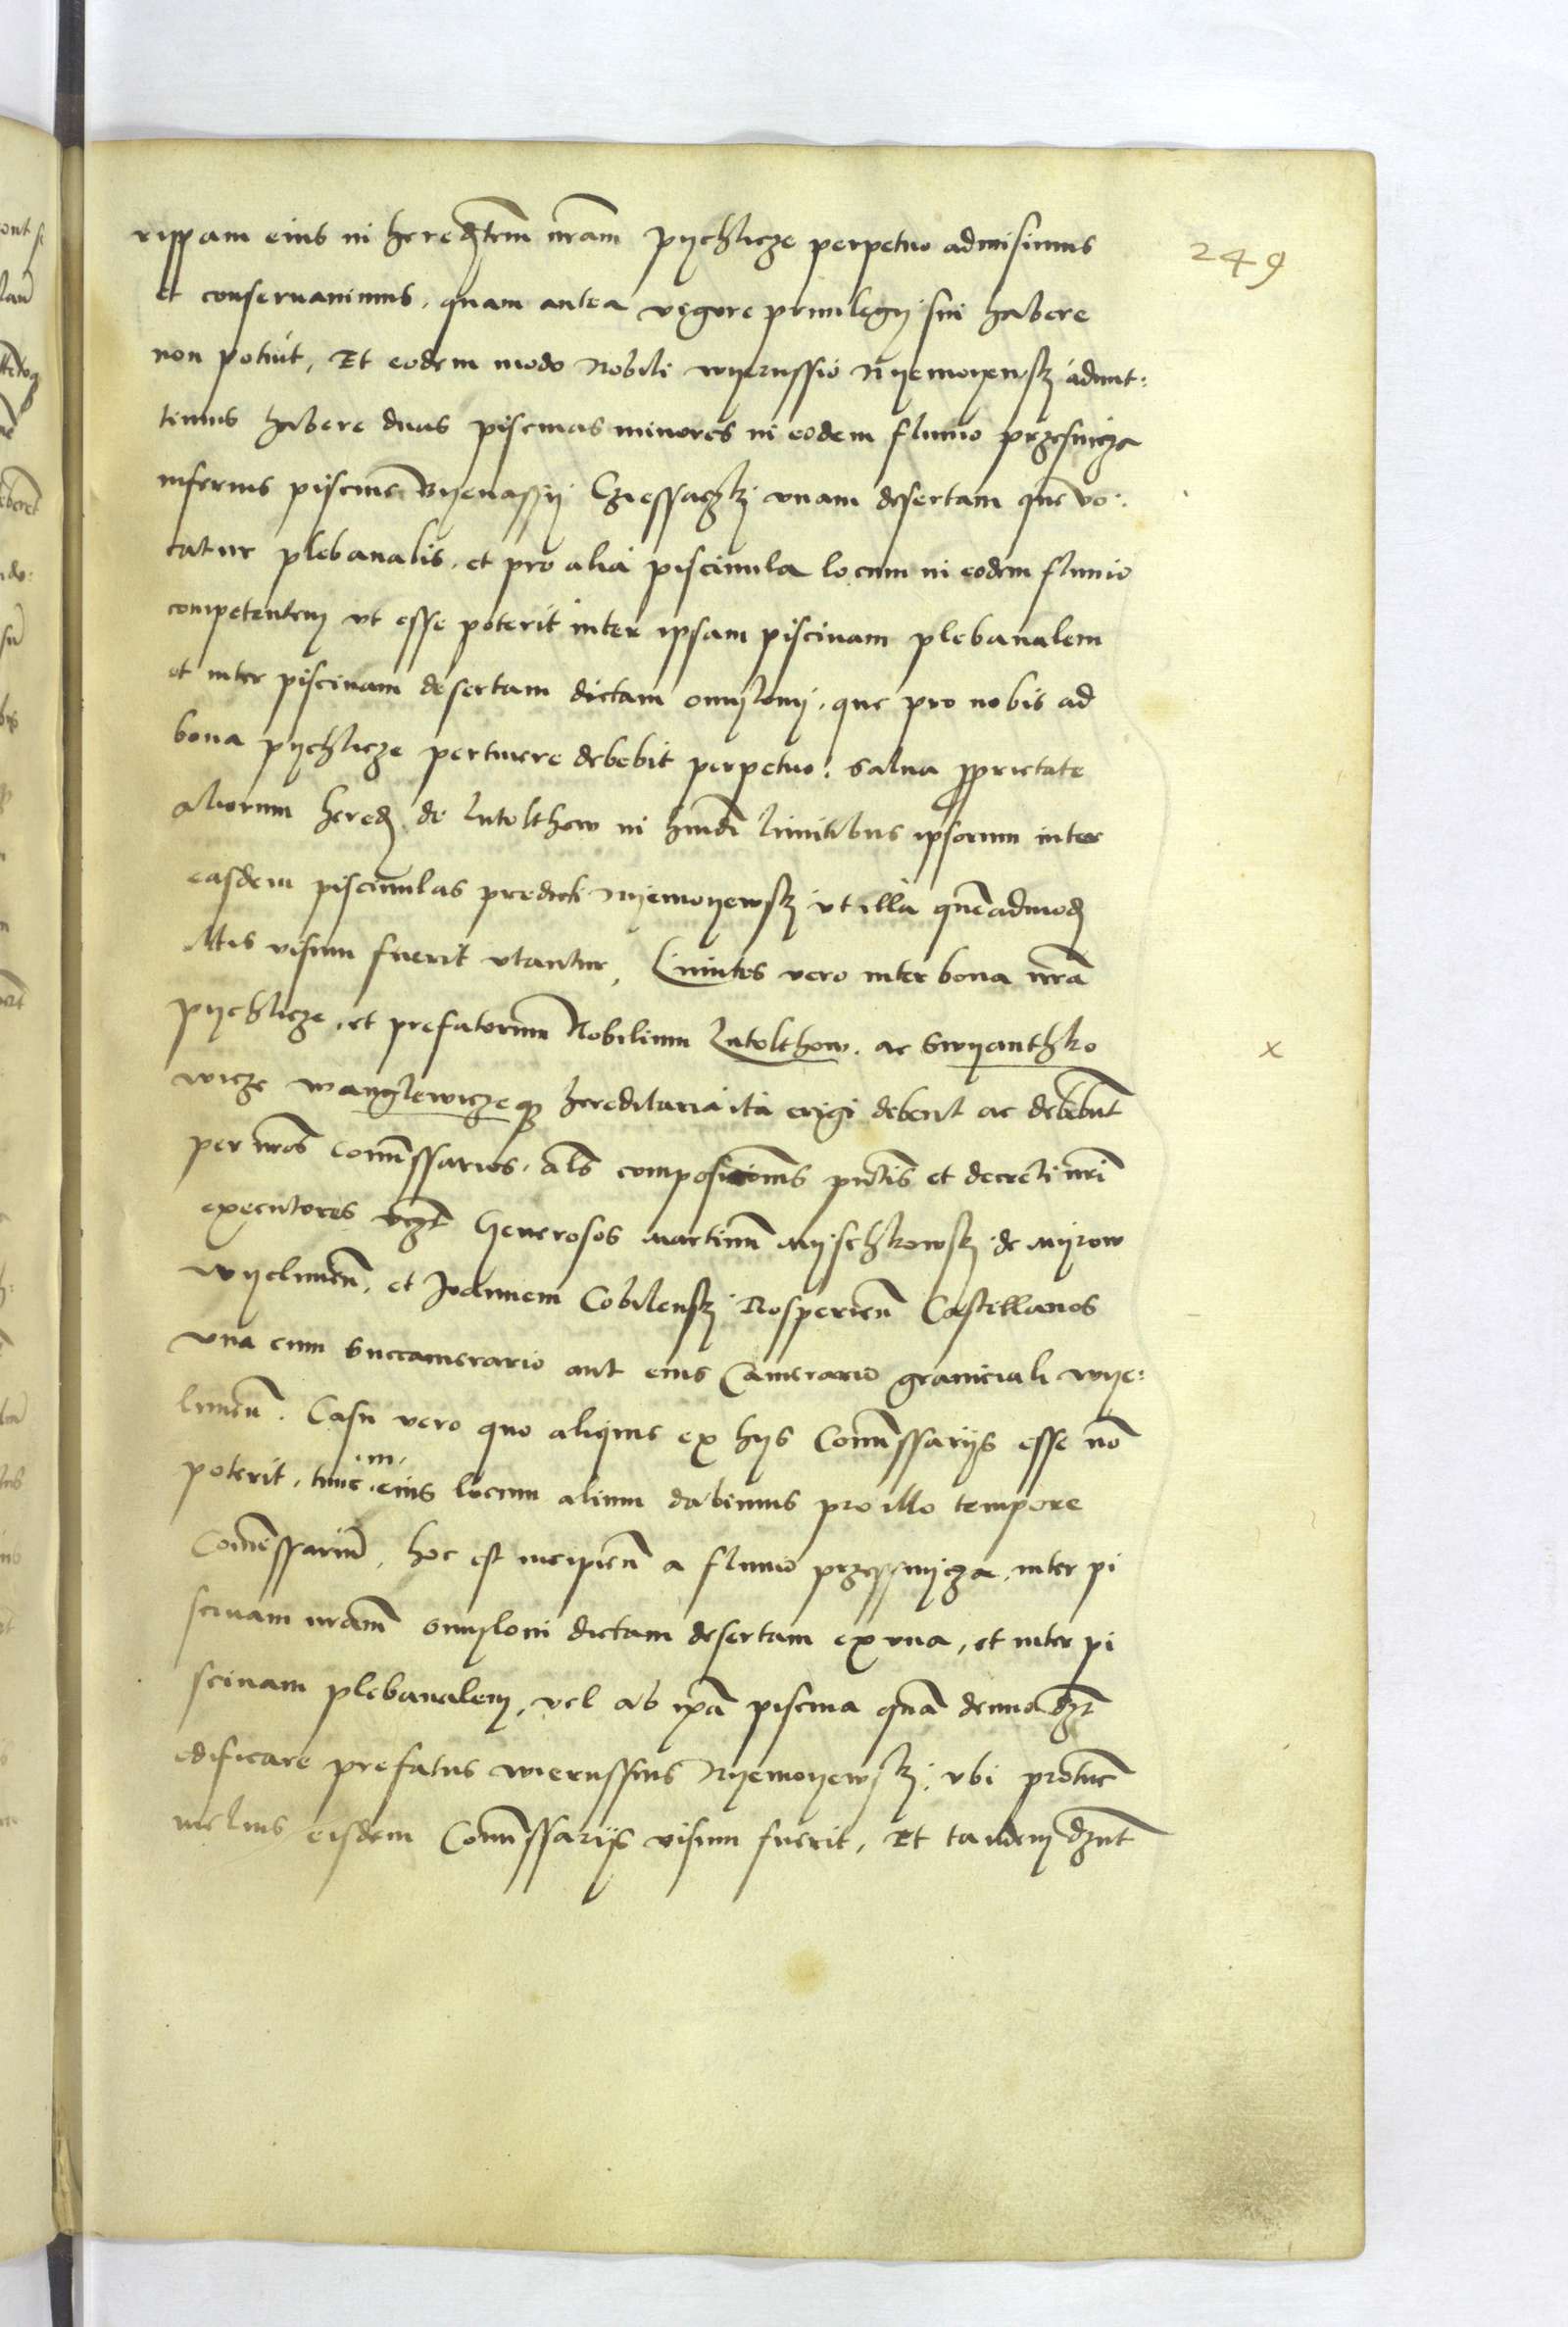 rippam eius in heređtem nr̄am pychlicze perpetuo admisimus
249
et conseruauimus, quam antea vigore priuilegij sui habere
non potuit, Et eodem modo Nobili wyerussio Nyemoyewskj admit:
timus habere duas piscinas minores in eodem fluuio przesnicza
inferius piscine Byenassij Cziessaczkj vnam desertam que vo:
catur plebanalis, et pro alia piscinula locum in eodem fluuio
competentem vt esse poterit inter ipsam piscinam plebanalem
et inter piscinam desertam dictam omylony, que pro nobis ad
bona pychlicze pertinere debebit perpetuo: salua proprietate
aliorum hered de Lutolthow in limitibus ipsorum inter
easdem piscinulas predicti Nyemoyewskj vt illa quēadmod
illis visum fuerit vtantur, Limites vero inter bona nr̄a
pychlicze, et prefatorum Nobilium Lutolthow, ac Swyanthko
x
wicze wanglewicze qȝ hereditaria ita erigi debent ac debebunt
per nr̄os Com̄issarios, als compositionis pn̄tis et decreti nr̄i
executores vczt Generosos Martinum Myschkowskj de Myrow
wyeluneñ, et Joannem Cobilenskj Rosperieñ Castellanos
vna cum Succamerario aut eius Camerario graniciali wye:
luneñ. Casu vero quo aliquis ex hijs Com̄issarijs esse nō
poterit, tunc in eius locum alium dabimus pro illo tempore
Com̄issariū, hoc est incipieñ a fluuio przessnycza, inter pi
scinam nr̄am omyloni dictam desertam ex vna, et inter pi
scinam plebanalem, vel ab ipā piscina quā denuo dȝt
edificare prefatus wierussius Nyemoyewskj, vbi protunc
melius eisdem Com̄issarijs visum fuerit, Et tandem dȝnt